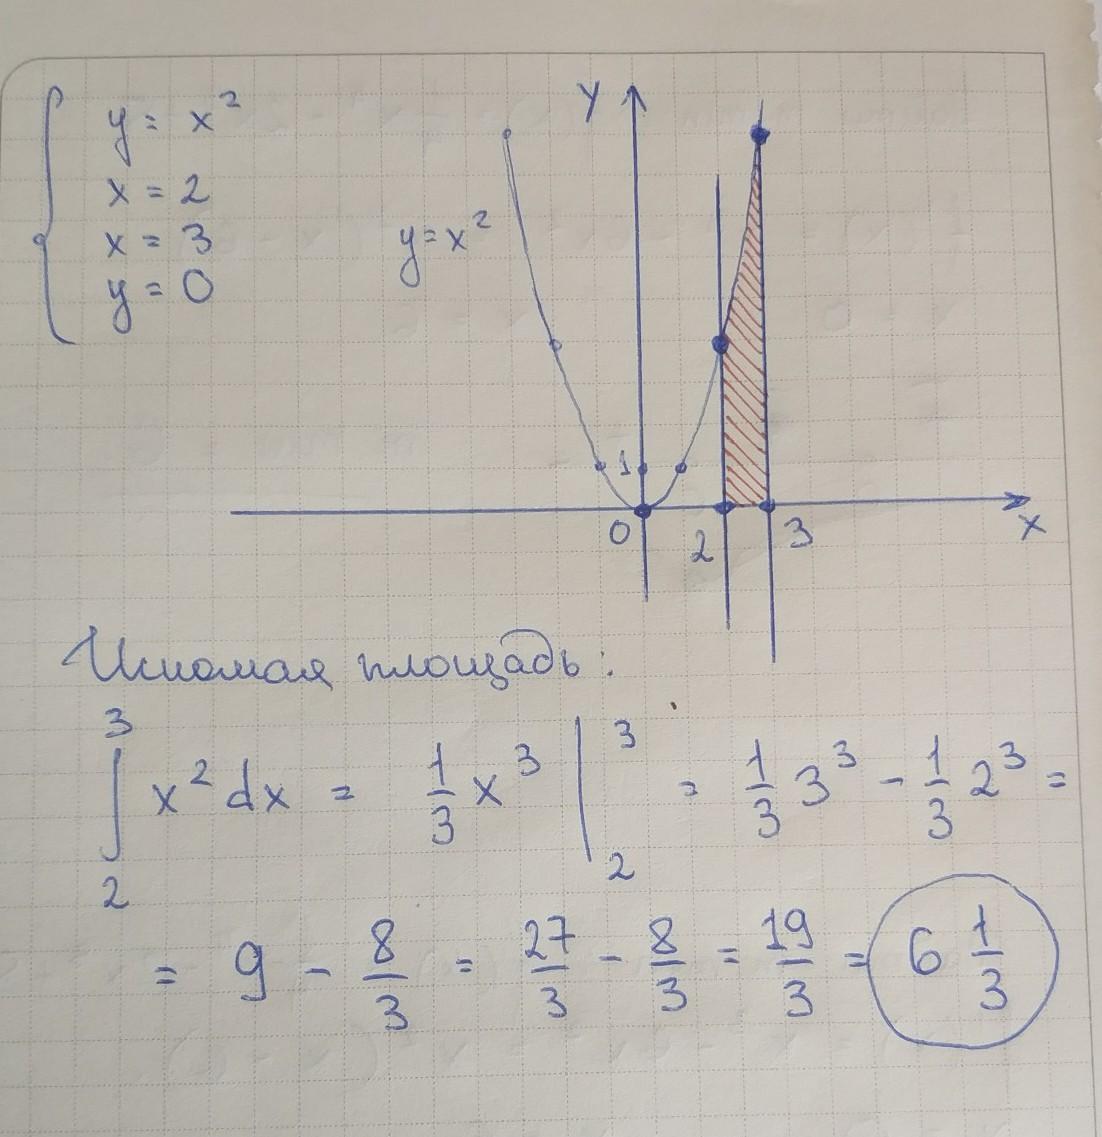 y = x²
x = 2
x = 3
y = 0
y
y = x²
1
0
2
3
x
Искомая площадь:
∫₂³ x² dx = 1/3 x³ |₂³ = 1/3 3³ - 1/3 2³ =
= 9 - 8/3 = 27/3 - 8/3 = 19/3 = 6 1/3